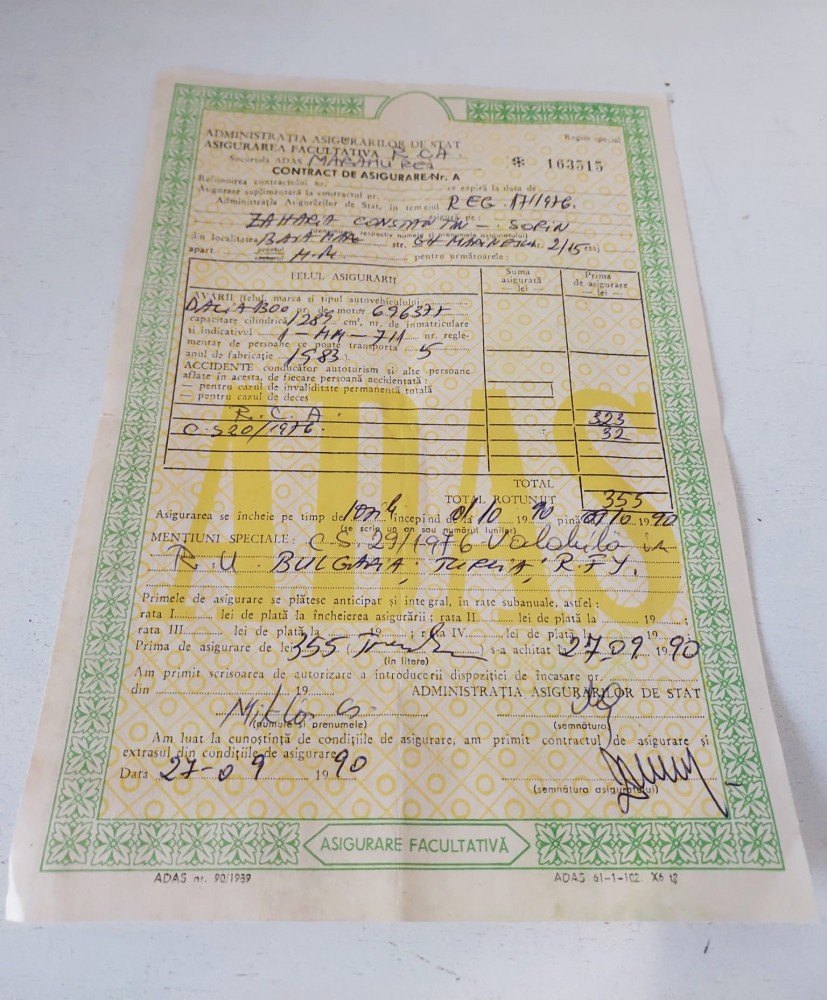 ADMINISTRAȚIA ASIGURĂRILOR DE STAT
Regim special
ASIGURAREA FACULTATIVĂ R.C.A.
Sucursala ADAS MARAMUREȘ
* 163515
CONTRACT DE ASIGURARE Nr. A
Reînnoirea contractului nr. ce expiră la data de
Asigurare suplimentară la contractul nr.
Administrația Asigurărilor de Stat, în temeiul REG. 17/1976.
asigură pe:
ZAHARIA CONSTANTIN - SORIN
(denumirea, respectiv numele și prenumele asiguratului)
din localitatea BAIA MARE str. GH MARINESCU 2/15
apart. județul M.M. pentru următoarele:
FELUL ASIGURĂRII
Suma asigurată — lei —
Prima de asigurare — lei —
AVARII (felul, marca și tipul autovehiculului
DACIA 1300 nr. de motor
capacitate cilindrică 1289 cm³, nr. de înmatriculare
și indicativul 1-MM-711 nr. regle-
mentar de persoane ce poate transporta 5
anul de fabricație 1983).
ACCIDENTE conducător autoturism și alte persoane
aflate în acesta, de fiecare persoană accidentată:
— pentru cazul de invaliditate permanentă totală
— pentru cazul de deces
R.C.A. 323
C.S20/1976. 32
ADAS
TOTAL
TOTAL ROTUNJIT 355
Asigurarea se încheie pe timp de începînd de la 01 10 1990 pînă 1990
(se scrie un an sau numărul lunilor)
MENȚIUNI SPECIALE: C.S. 29/1976 Valabilă în
R.U. BULGARIA, TURCIA,
Primele de asigurare se plătesc anticipat și integral, în rate subanuale, astfel:
rata I lei de plată la încheierea asigurării; rata II lei de plată la 19 ;
rata III lei de plată la 19 ; rata IV lei de plată la 19 .
Prima de asigurare de lei 355 ( ) s-a achitat la 27.09 1990
(în litere)
Am primit scrisoarea de autorizare a introducerii dispoziției de încasare nr.
din 19 ADMINISTRAȚIA ASIGURĂRILOR DE STAT
(numele și prenumele)
(semnătura)
Am luat la cunoștință de condițiile de asigurare, am primit contractul de asigurare și
extrasul din condițiile de asigurare.
Data 27-09 1990
(semnătura asiguratului)
ASIGURARE FACULTATIVĂ
ADAS nr. 90/1989
ADAS 61-1-102. X6 t2